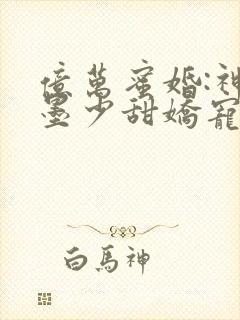 億萬蜜婚:神
墨少甜嬌寵
白馬神